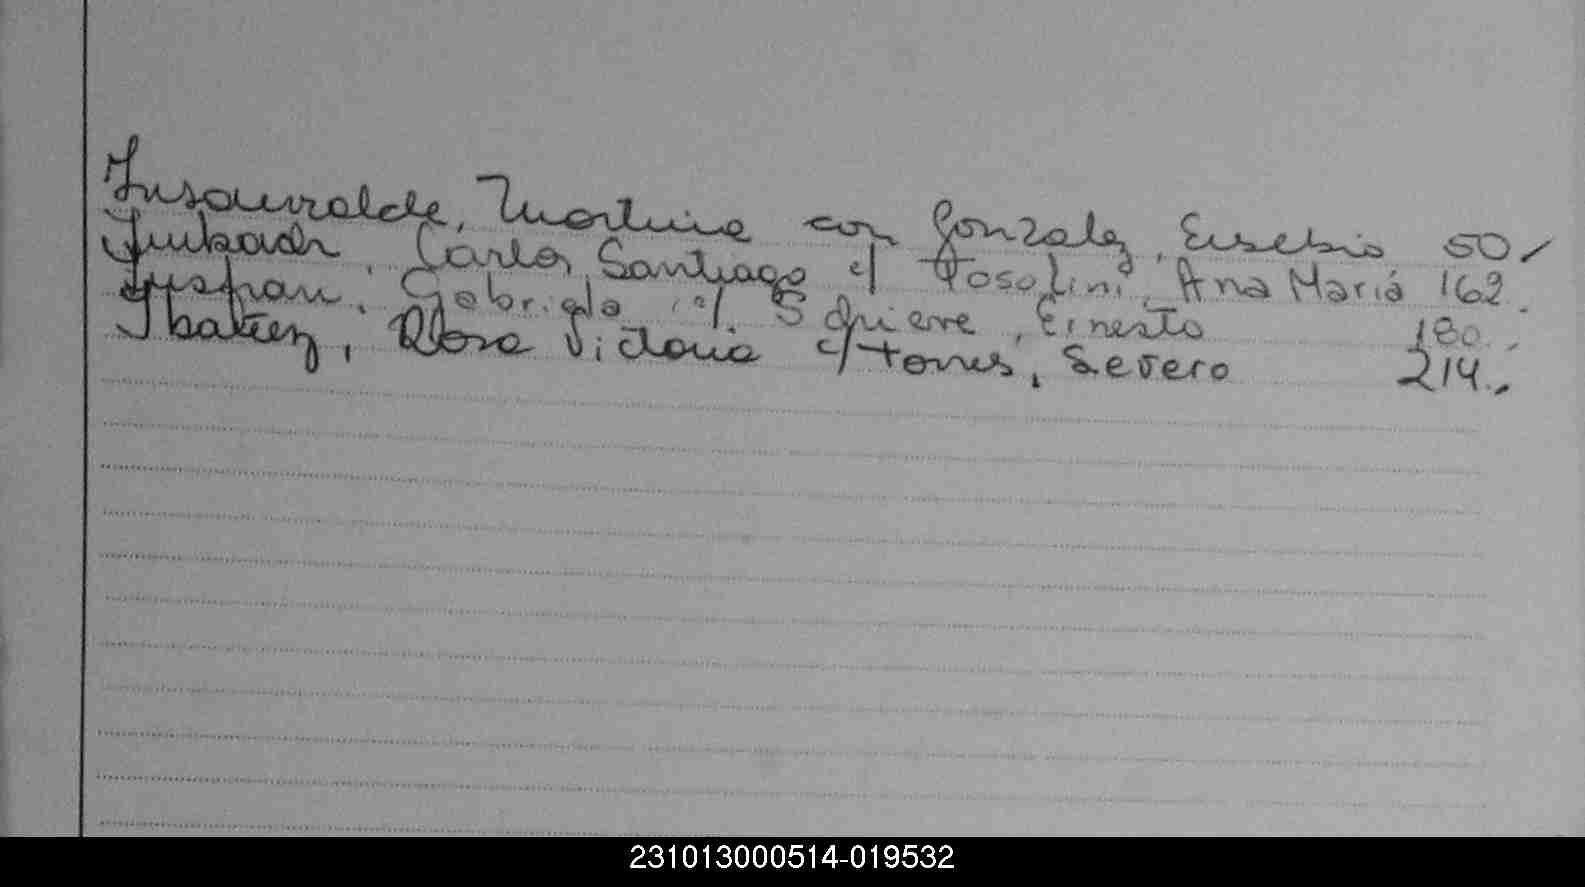 Insaurralde, Martina con Gonzalez, Eusebio 50/
Carlos Santiago c/ Tosolini, Ana Maria 162.
Gabriela c/ Ernesto 180.
Ibañez, Rosa Victoria c/ Torres, Severo 214.
231013000514-019532